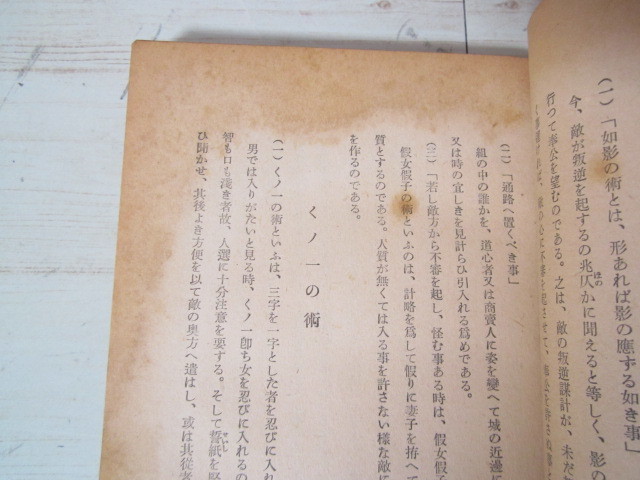 (一)「如影の術とは、形あれば影の應ずる如き事」
今、敵が叛逆を起するの兆仄かに聞えると等しく、影の
行つて奉公を望むのである。之は、敵の叛逆謀計が、未だ
(二)「通路へ置くべき事」
組の中の誰かを、道心者又は商賣人に姿を變へて城の近邊に
又は時の宜しきを見計らひ引入れる爲めである。
(三)「若し敵方から不審を起し、怪む事ある時は、假女假子
假女假子の術といふのは、計略を爲して假りに妻子を拵へて
質とするのである。人質が無くては入る事を許さない樣な敵に
を作るのである。
くノ一の術
(一)くノ一の術といふは、三字を一字とした者を忍びに入れ
男では入りがたいと見る時、くノ一卽ち女を忍びに入れるの
智も口も淺き者故、人選に十分注意を要する。そして誓紙を堅
ひ聞かせ、其後よき方便を以て敵の奥方へ遣はし、或は其從者